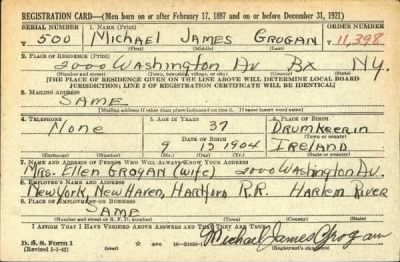 REGISTRATION CARD—(Men born on or after February 17, 1897 and on or before December 31, 1921)
SERIAL NUMBER 1. NAME (Print) ORDER NUMBER
T 500 Michael James Grogan T 11,398
(First) (Middle) (Last)
2. PLACE OF RESIDENCE (Print)
2000 Washington Av Bx N.Y.
(Number and street) (Town, township, village, or city) (County) (State)
[THE PLACE OF RESIDENCE GIVEN ON THE LINE ABOVE WILL DETERMINE LOCAL BOARD
JURISDICTION; LINE 2 OF REGISTRATION CERTIFICATE WILL BE IDENTICAL]
3. MAILING ADDRESS
SAME
[Mailing address if other than place indicated on line 2. If same insert word same]
4. TELEPHONE 5. AGE IN YEARS 6. PLACE OF BIRTH
None 37 Drumkeerin
DATE OF BIRTH (Town or county)
9 13 1904 Ireland
(Exchange) (Number) (Mo.) (Day) (Yr.) (State or country)
7. NAME AND ADDRESS OF PERSON WHO WILL ALWAYS KNOW YOUR ADDRESS
Mrs. Ellen Grogan (wife) 2000 Washington Av.
8. EMPLOYER'S NAME AND ADDRESS
New York, New Haven, Hartford R.R. Harlem River
9. PLACE OF EMPLOYMENT OR BUSINESS
SAME
(Number and street or R. F. D. number) (Town) (County) (State)
I AFFIRM THAT I HAVE VERIFIED ABOVE ANSWERS AND THAT THEY ARE TRUE.
D. S. S. Form 1 Michael James Grogan
(Revised 1-1-42) (over) (Registrant's signature)